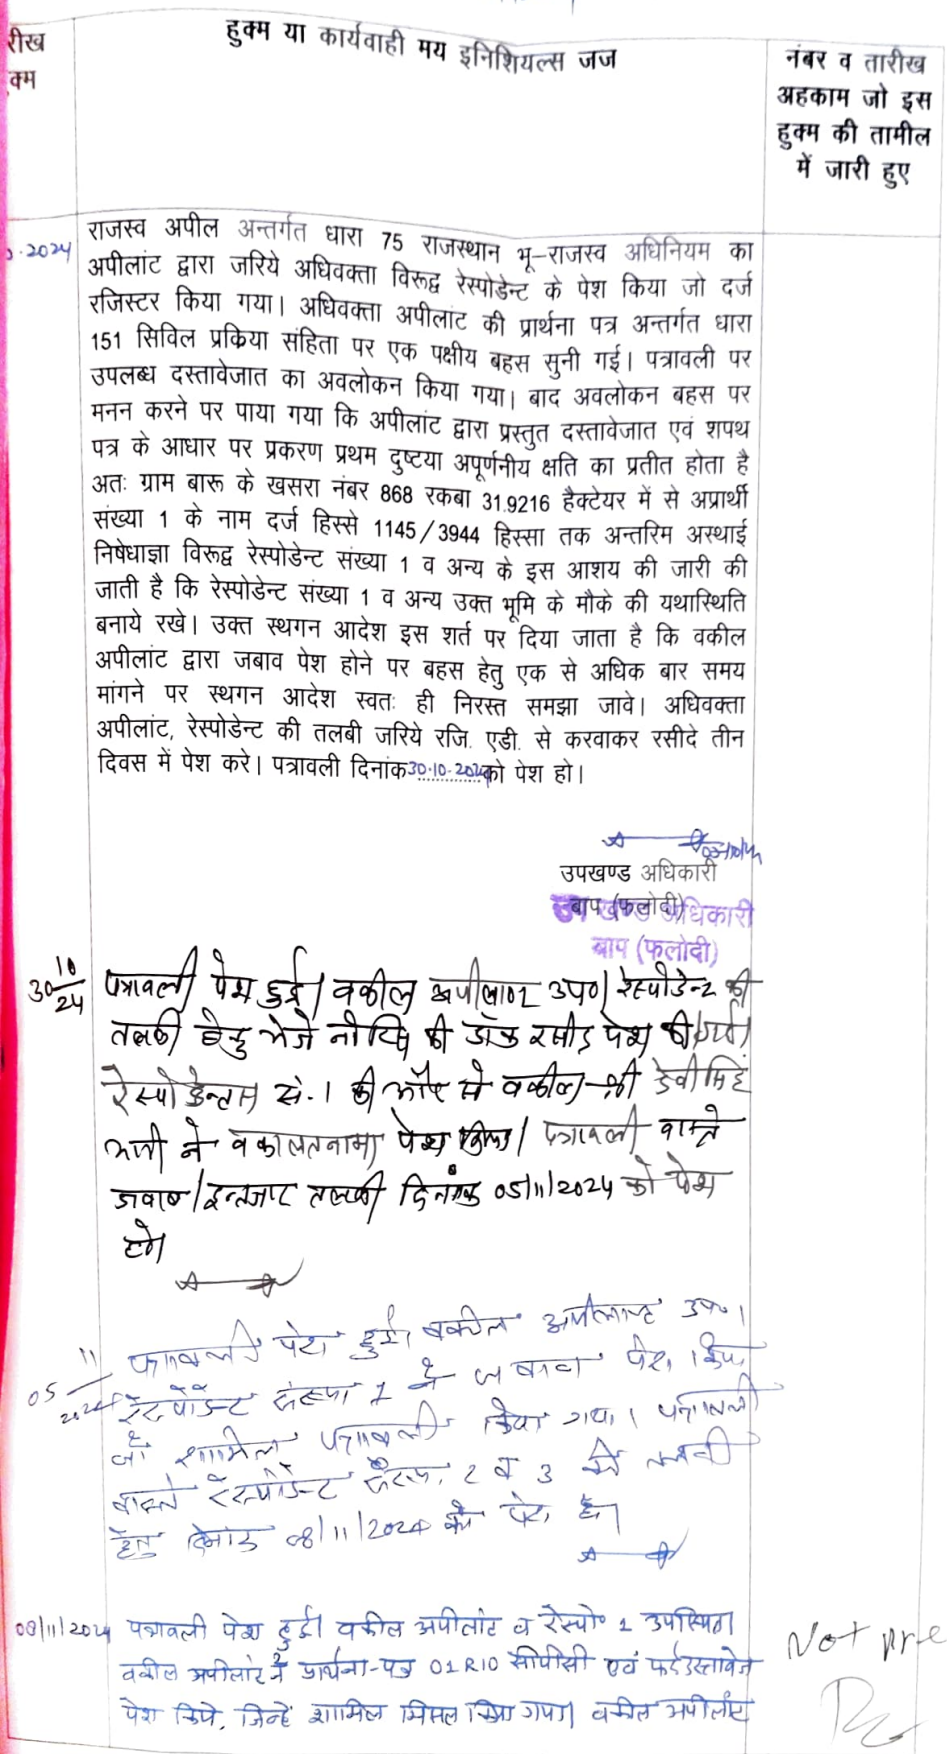 रीख
क्म
हुक्म या कार्यवाही मय इनिशियल्स जज
नंबर व तारीख
अहकाम जो इस
हुक्म की तामील
में जारी हुए
.2024
राजस्व अपील अन्तर्गत धारा 75 राजस्थान भू–राजस्व अधिनियम का
अपीलांट द्वारा जरिये अधिवक्ता विरूद्व रेस्पोडेन्ट के पेश किया जो दर्ज
रजिस्टर किया गया। अधिवक्ता अपीलांट की प्रार्थना पत्र अन्तर्गत धारा
151 सिविल प्रकिया संहिता पर एक पक्षीय बहस सुनी गई। पत्रावली पर
उपलब्ध दस्तावेजात का अवलोकन किया गया। बाद अवलोकन बहस पर
मनन करने पर पाया गया कि अपीलांट द्वारा प्रस्तुत दस्तावेजात एवं शपथ
पत्र के आधार पर प्रकरण प्रथम दुष्टया अपूर्णनीय क्षति का प्रतीत होता है
अतः ग्राम बारू के खसरा नंबर 868 रकबा 31.9216 हैक्टेयर में से अप्रार्थी
संख्या 1 के नाम दर्ज हिस्से 1145/3944 हिस्सा तक अन्तरिम अस्थाई
निषेधाज्ञा विरूद्व रेस्पोडेन्ट संख्या 1 व अन्य के इस आशय की जारी की
जाती है कि रेस्पोडेन्ट संख्या 1 व अन्य उक्त भूमि के मौके की यथास्थिति
बनाये रखे। उक्त स्थगन आदेश इस शर्त पर दिया जाता है कि वकील
अपीलांट द्वारा जबाव पेश होने पर बहस हेतु एक से अधिक बार समय
मांगने पर स्थगन आदेश स्वतः ही निरस्त समझा जावे। अधिवक्ता
अपीलांट, रेस्पोडेन्ट की तलबी जरिये रजि. एडी. से करवाकर रसीदे तीन
दिवस में पेश करे। पत्रावली दिनांक 30.10.2024 को पेश हो।
उपखण्ड अधिकारी
बाप (फलोदी)
उप खण्ड अधिकारी
बाप (फलोदी)
30/10/24 पत्रावली पेश हुई। वकील अपीलाण्ट उप०। रेस्पोडेन्ट की
तलबी हेतु भेजे नोटिस की डाक रसीद पेश की गई।
रेस्पोडेन्टस सं. 1 की और से वकील श्री देवीसिंह
भाटी ने वकालतनामा पेश किया। पत्रावली वास्ते
जवाब/इन्तजार तलबी दिनांक 05/11/2024 को पेश
हो।
05/11/2024 पत्रावली पेश हुई। वकील अपीलाण्ट उप०।
रेस्पोडेन्ट संख्या 1 ने जबाव पेश किया
जो शामिल पत्रावली किया गया। पत्रावली
वास्ते रेस्पोडेन्ट संख्या 2 व 3 की तलबी
हेतु दिनांक 08/11/2024 को पेश हो।
08/11/2024 पत्रावली पेश हुई। वकील अपीलांट व रेस्पो० 1 उपस्थित।
वकील अपीलांट ने प्रार्थना-पत्र 01 R10 सीपीसी एवं फर्द दस्तावेज
पेश किये, जिन्हें शामिल मिसल किया गया। वकील अपीलांट
Not pre